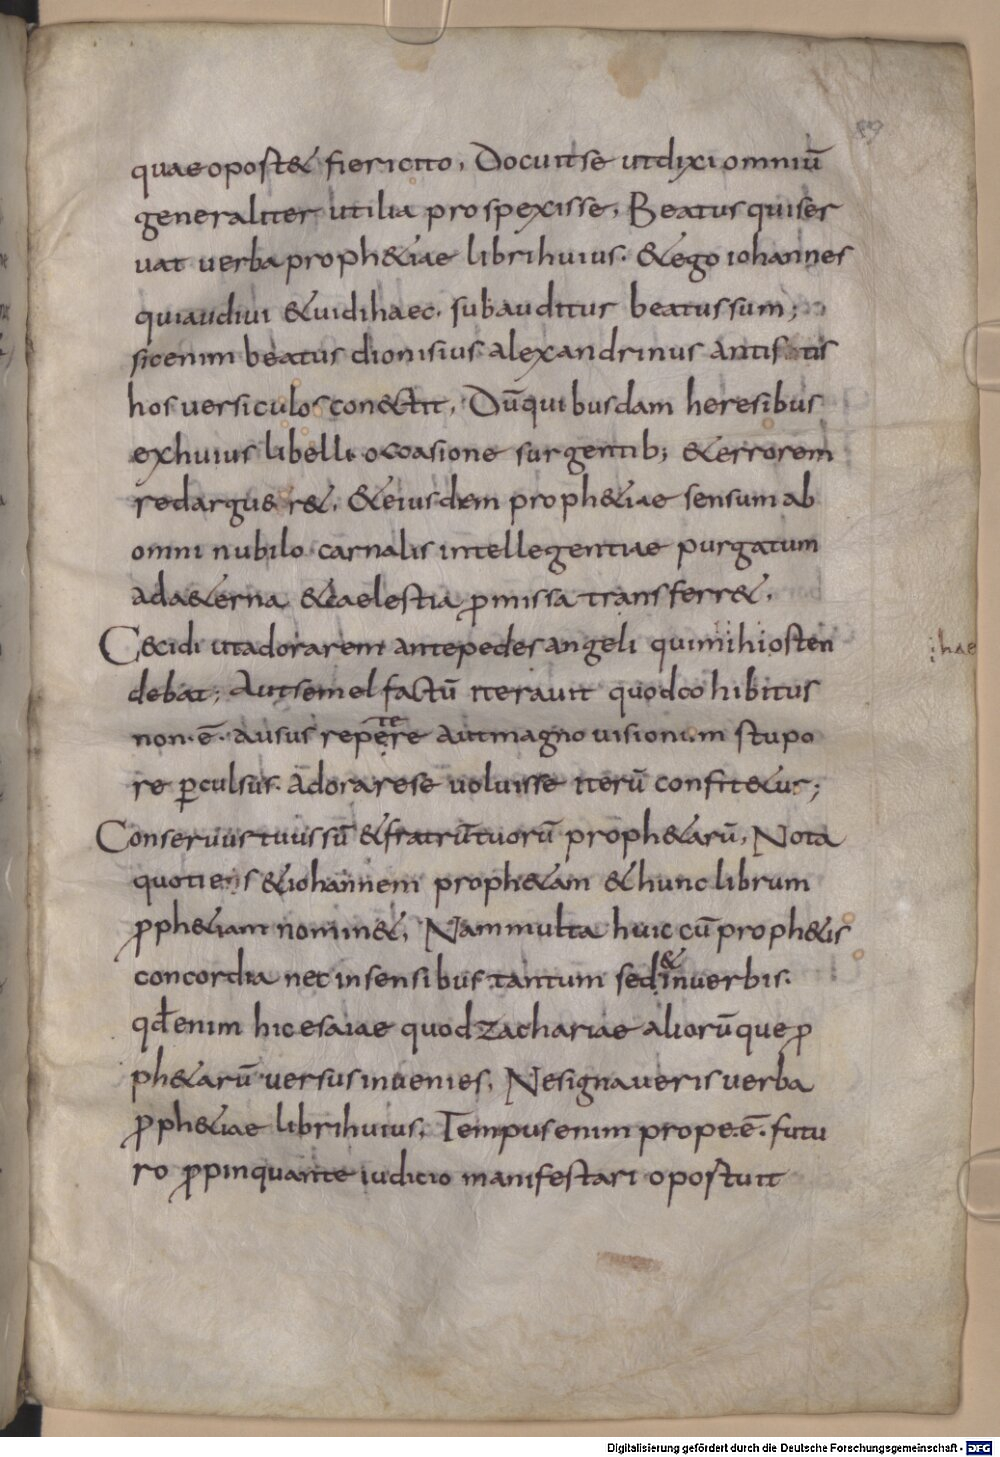 89
quae opost& fieri cito, Docuit se ut dixi omniū
generaliter utilia prospexisse, Beatus qui ser
uat uerba proph&iae libri huius. & ego iohannes
qui audiui & uidi haec. subauditur beatus sum;
sic enim beatus dionisius alexandrinus antistis
hos uersiculos conectit, Dū quibusdam heresibus
ex huius libelli occasione surgentib; & errorem
redargue r&, & eiusdem proph&iae sensum ab
omni nubilo carnalis intellegentiae purgatum
ad a&erna & caelestia ꝓmissa transferr&,
Cecidi ut adorarem ante pedes angeli qui mihi osten
debat; Aut semel factū iterauit quod cohibitus
non.ē. ausus repetere aut magno uisionum stupo
re ꝑculsus. Adorare se uoluisse iterū confit&ur;
Conseruus tuus sū & fratrū tuorū proph&arū, Nota
quotiens & iohannem proph&am & hunc librum
ꝓph&iam nomin&, Nam multa huic cū proph&is
concordia nec in sensibus tantum sed & in uerbis.
qđ enim hic esaiae quod zachariae aliorūque ꝓ
ph&arū uersus inuenies, Ne signaueris uerba
ꝓph&iae libri huius, Tempus enim prope.ē. futu
ro ꝓpinquante iudicio manifestari opostuit
hae
Digitalisierung gefördert durch die Deutsche Forschungsgemeinschaft - DFG